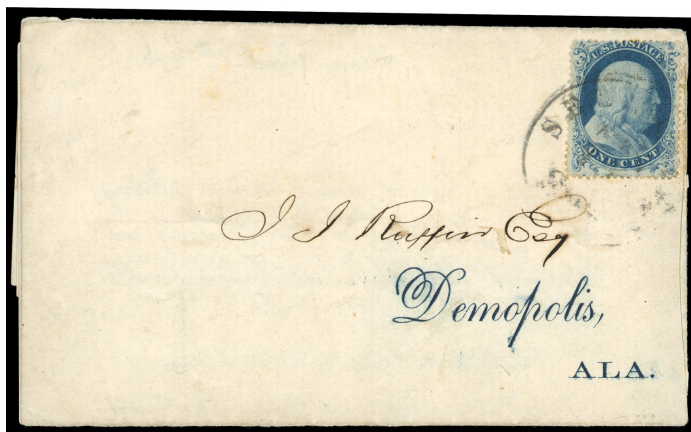 U.S. POSTAGE
ONE CENT
J J Ruffin Esq
Demopolis,
ALA.